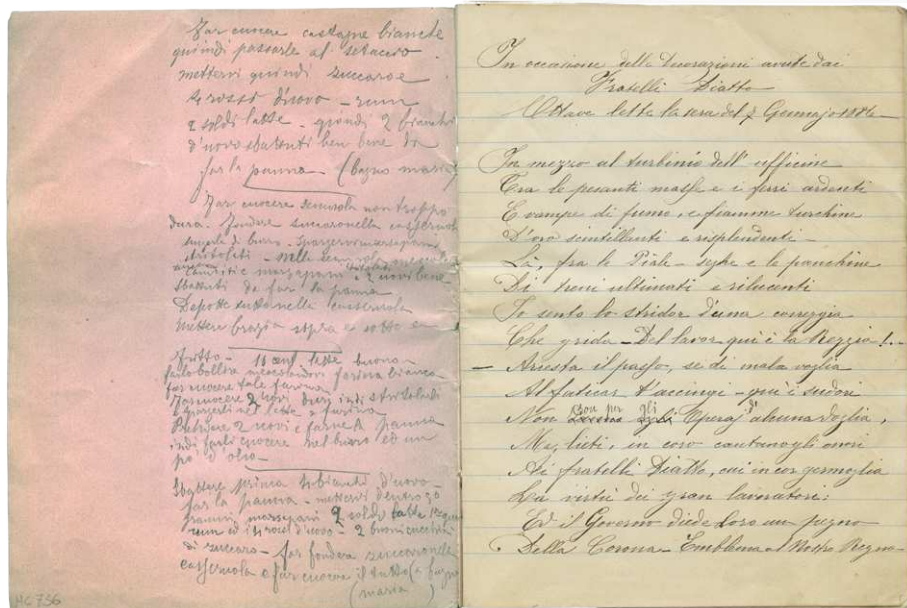 Far cuocere castagne bianche
quindi passarle al setaccio
mettervi quindi succaroe
4 rossi d'uovo - rum
2 soldi latte - quindi 2 bianchi
d'uovo sbattuti ben bene da
far la panna - (bagno maria)
Far cuocere semola non troppo
dura - fondere succaro nella casseruola
di burro - spargervi marzapani
stritolati - nella semola mescolare
canditi e marzapani 2 uovi bene
sbattuti da far la panna
Deporre tutto nella casseruola
mettere bragia sopra e sotto
Fritto - latte buono -
farlo bollire mescolandovi farina bianca
far cuocere tale farina
Far cuocere 2 uovi duri indi stritolarli
e spargerli nel latte e farina
Prendere 2 uovi e farne la panna
indi farli cuocere nel burro ed un
po' d'olio -
Sbattere prima 4 bianchi d'uovo -
far la panna - mettervi dentro 30
grammi marzapani 2 soldi latte
rum ed i 4 rossi d'uovo - 2 buoni cucchiai
di succaro - far fondere succaro nella
casseruola e far cuocere il tutto (a bagno
maria)
HC 736
In occasione delle Decorazioni avute dai
Fratelli Diatto
Ottave lette la sera del 2 Gennajo 1886 -
In mezzo al turbinio dell' officine
Tra le pesanti masse e i ferri ardenti
E vampe di fumo, e fiamme turchine
D'oro scintillanti e risplendenti -
Là, fra le Pialle - seghe e le panchine
Di treni ultimati e rilucenti
Io sento lo stridor d'una correggia
Che grida - Del lavor qui è la Reggia !..
- Arresta il passo, se di mala voglia
Al faticar t'accingi - qui i sudori
Non son per gli Operaj d'alcuna doglia,
Ma, lieti, in coro cantano gli onori
Ai fratelli Diatto, cui in cor germoglia
La virtù dei gran lavoratori:
Ed il Governo diede loro un pegno
Della Corona - Emblema al Nostro Regno -